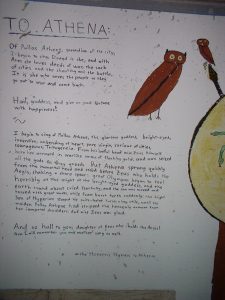 TO ATHENA:
Of Pallas Athena, guardian of the city,
I begin to sing. Dread is she, and with
Ares she loves deeds of war, the sack
of cities and the shouting and the battle.
It is she who saves the people as they
go out to war and come back.
Hail, goddess, and give us good fortune
with happiness!
I begin to sing of Pallas Athena, the glorious goddess, bright-eyed,
inventive, unbending of heart, pure virgin, saviour of cities,
courageous, Tritogeneia. From his awful head wise Zeus himself
bare her arrayed in warlike arms of flashing gold, and awe seized
all the gods as they gazed. But Athena sprang quickly
from the immortal head and stood before Zeus who holds the
Aegis, shaking a sharp spear: great Olympus began to reel
horribly at the might of the bright-eyed goddess, and the
earth round about cried fearfully, and the sea was moved and
tossed with dark waves, while foam burst forth suddenly: the bright
Son of Hyperion stopped his swift-footed horses a long while, until the
maiden Pallas Athena had stripped the heavenly armour from
her immortal shoulders. And wise Zeus was glad.
And so hail to you, daughter of Zeus who holds the Aegis!
Now I will remember you and another song as well.
the Homeric Hymns to Athena